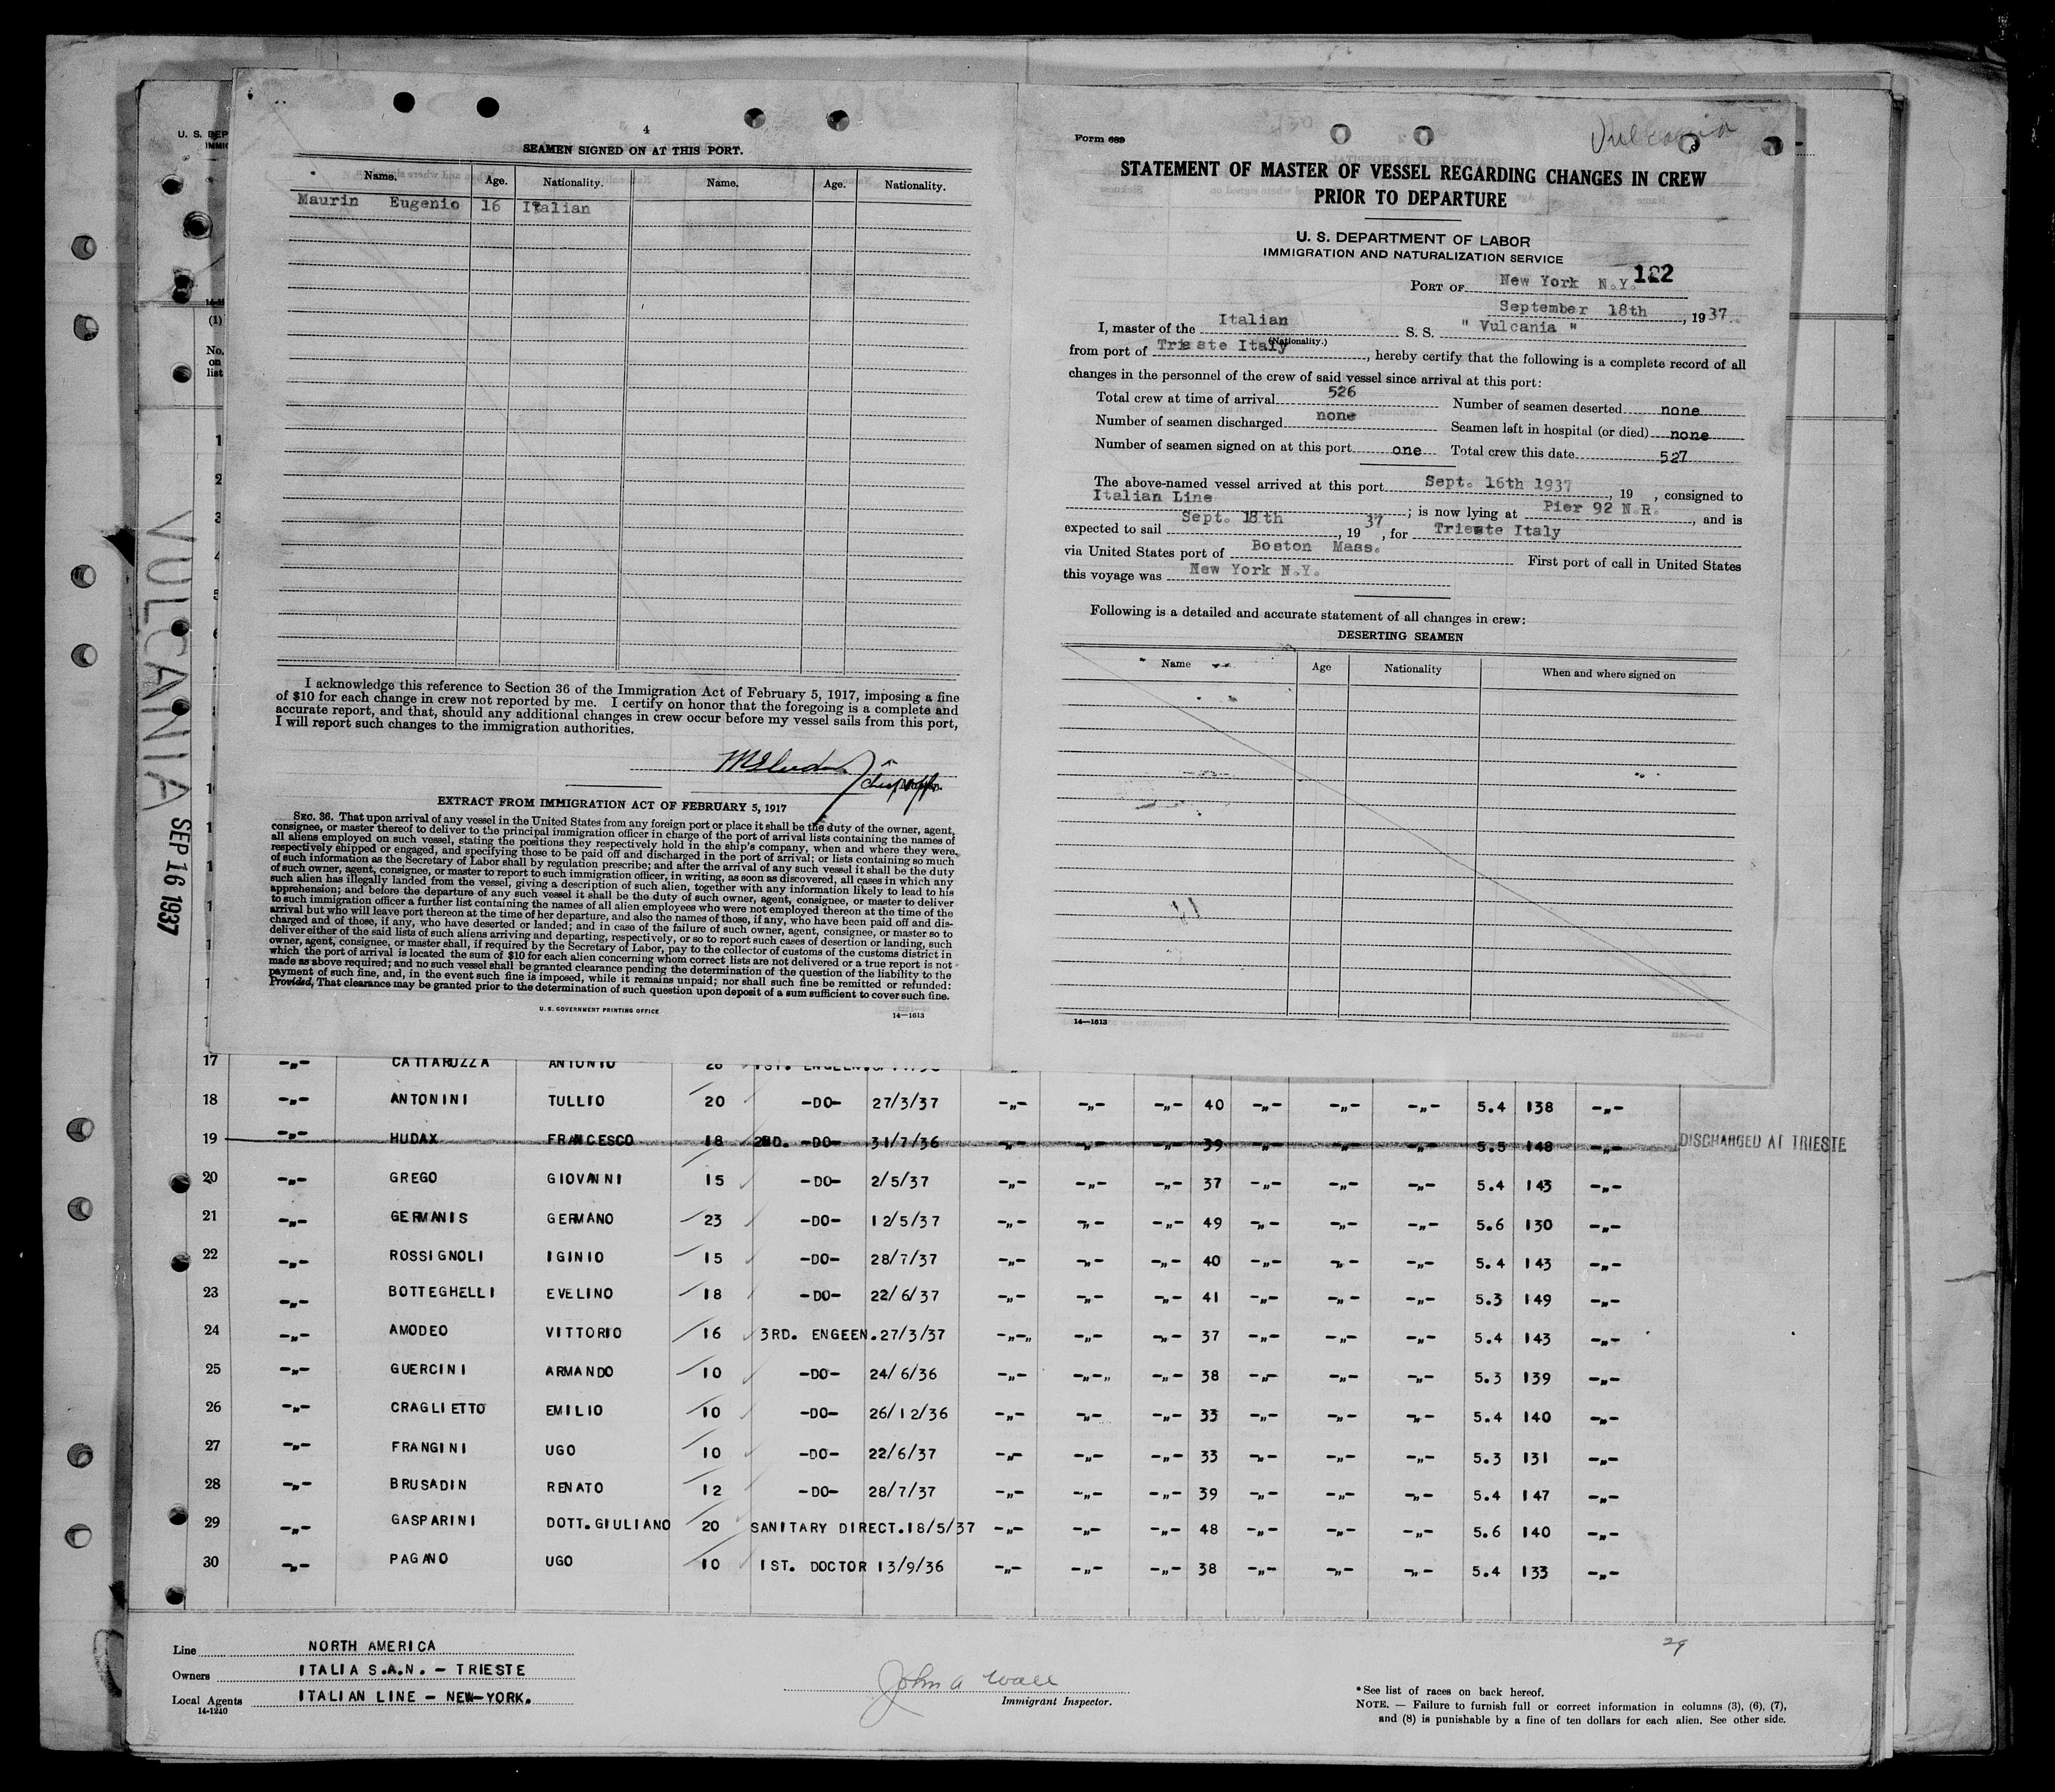 4
SEAMEN SIGNED ON AT THIS PORT.
Name. Age. Nationality. Name. Age. Nationality.
Maurin Eugenio 16 Italian
I acknowledge this reference to Section 36 of the Immigration Act of February 5, 1917, imposing a fine
of $10 for each change in crew not reported by me. I certify on honor that the foregoing is a complete and
accurate report, and that, should any additional changes in crew occur before my vessel sails from this port,
I will report such changes to the immigration authorities.
EXTRACT FROM IMMIGRATION ACT OF FEBRUARY 5, 1917
SEC. 36. That upon arrival of any vessel in the United States from any foreign port or place it shall be the duty of the owner, agent,
consignee, or master thereof to deliver to the principal immigration officer in charge of the port of arrival lists containing the names of
all aliens employed on such vessel, stating the positions they respectively hold in the ship's company, when and where they were
respectively shipped or engaged, and specifying those to be paid off and discharged in the port of arrival; or lists containing so much
of such information as the Secretary of Labor shall by regulation prescribe; and after the arrival of any such vessel it shall be the duty
of such owner, agent, consignee, or master to report to such immigration officer, in writing, as soon as discovered, all cases in which any
such alien has illegally landed from the vessel, giving a description of such alien, together with any information likely to lead to his
apprehension; and before the departure of any such vessel it shall be the duty of such owner, agent, consignee, or master to deliver
to such immigration officer a further list containing the names of all alien employees who were not employed thereon at the time of the
arrival but who will leave port thereon at the time of her departure, and also the names of those, if any, who have been paid off and dis-
charged and of those, if any, who have deserted or landed; and in case of the failure of such owner, agent, consignee, or master so to
deliver either of the said lists of such aliens arriving and departing, respectively, or so to report such cases of desertion or landing, such
owner, agent, consignee, or master shall, if required by the Secretary of Labor, pay to the collector of customs of the customs district in
which the port of arrival is located the sum of $10 for each alien concerning whom correct lists are not delivered or a true report is not
made as above required; and no such vessel shall be granted clearance pending the determination of the question of the liability to the
payment of such fine, and, in the event such fine is imposed, while it remains unpaid; nor shall such fine be remitted or refunded:
Provided, That clearance may be granted prior to the determination of such question upon deposit of a sum sufficient to cover such fine.
U. S. GOVERNMENT PRINTING OFFICE
14—1613
Vulcania
Form 689
STATEMENT OF MASTER OF VESSEL REGARDING CHANGES IN CREW
PRIOR TO DEPARTURE
U. S. DEPARTMENT OF LABOR
IMMIGRATION AND NATURALIZATION SERVICE
PORT OF New York N.Y. 122
September 18th, 1937
I, master of the Italian S. S. " Vulcania "
(Nationality.)
from port of Trieste Italy, hereby certify that the following is a complete record of all
changes in the personnel of the crew of said vessel since arrival at this port:
Total crew at time of arrival 526 Number of seamen deserted none
Number of seamen discharged none Seamen left in hospital (or died) none
Number of seamen signed on at this port one Total crew this date 527
The above-named vessel arrived at this port Sept. 16th 1937, 19 , consigned to
Italian Line; is now lying at Pier 92 N.R., and is
expected to sail Sept. 18th, 1937, for Trieste Italy
via United States port of Boston Mass. First port of call in United States
this voyage was New York N.Y.
Following is a detailed and accurate statement of all changes in crew:
DESERTING SEAMEN
Name Age Nationality When and where signed on
14—1613
U. S. DEP
(1)
No.
on
list
1
2
3
4
5
6
VULCANIA
SEP 16 1937
17 -„- CATTARUZZA ANTONIO
18 -„- ANTONINI TULLIO 20 -DO- 27/3/37 -„- -„- -„- 40 -„- -„- -„- 5.4 138 -„-
19 -„- HUDAX FRANCESCO 18 2ND. -DO- 31/7/36 -„- -„- -„- 39 -„- -„- -„- 5.5 148 -„- DISCHARGED AT TRIESTE
20 -„- GREGO GIOVANNI 15 -DO- 2/5/37 -„- -„- -„- 37 -„- -„- -„- 5.4 143 -„-
21 -„- GERMANIS GERMANO 23 -DO- 12/5/37 -„- -„- -„- 49 -„- -„- -„- 5.6 130 -„-
22 -„- ROSSIGNOLI IGINIO 15 -DO- 28/7/37 -„- -„- -„- 40 -„- -„- -„- 5.4 143 -„-
23 -„- BOTTEGHELLI EVELINO 18 -DO- 22/6/37 -„- -„- -„- 41 -„- -„- -„- 5.3 149 -„-
24 -„- AMODEO VITTORIO 16 3RD. ENGEEN. 27/3/37 -„- -„- -„- 37 -„- -„- -„- 5.4 143 -„-
25 -„- GUERCINI ARMANDO 10 -DO- 24/6/36 -„- -„- -„- 38 -„- -„- -„- 5.3 139 -„-
26 -„- CRAGLIETTO EMILIO 10 -DO- 26/12/36 -„- -„- -„- 33 -„- -„- -„- 5.4 140 -„-
27 -„- FRANGINI UGO 10 -DO- 22/6/37 -„- -„- -„- 33 -„- -„- -„- 5.3 131 -„-
28 -„- BRUSADIN RENATO 12 -DO- 28/7/37 -„- -„- -„- 39 -„- -„- -„- 5.4 147 -„-
29 -„- GASPARINI DOTT.GIULIANO 20 SANITARY DIRECT. 18/5/37 -„- -„- -„- 48 -„- -„- -„- 5.6 140 -„-
30 -„- PAGANO UGO 10 1ST. DOCTOR 13/9/36 -„- -„- -„- 38 -„- -„- -„- 5.4 133 -„-
29
Line NORTH AMERICA
Owners ITALIA S.A.N. - TRIESTE
Local Agents ITALIAN LINE - NEW-YORK.
14-1240
John A Wall
Immigrant Inspector.
*See list of races on back hereof.
NOTE. — Failure to furnish full or correct information in columns (3), (6), (7),
and (8) is punishable by a fine of ten dollars for each alien. See other side.